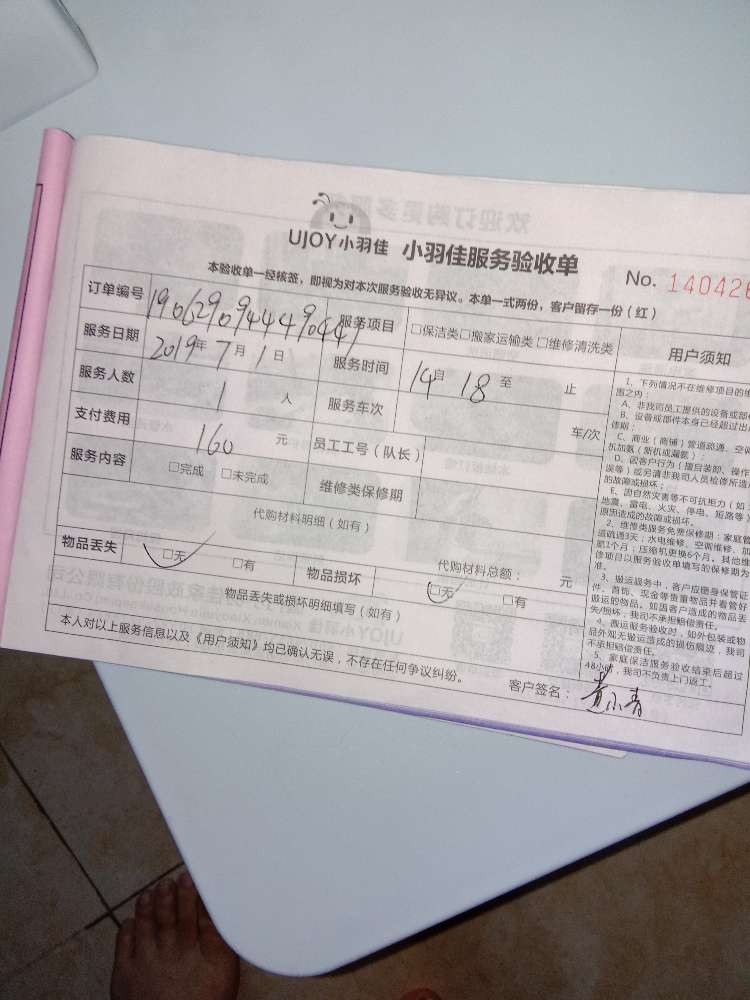 UJOY小羽佳 小羽佳服务验收单
No. 140426
本验收单一经核签，即视为对本次服务验收无异议。本单一式两份，客户留存一份（红）
订单编号 服务项目 □保洁类□搬家运输类□维修清洗类
服务日期 2019年 7月 1日 服务时间 14自 18至 止
服务人数 1 人 服务车次 车/次
支付费用 160 元 员工工号（队长）
服务内容 □完成 □未完成 维修类保修期
代购材料明细（如有）
代购材料总额： 元
物品丢失 □无 □有 物品损坏 □无 □有
物品丢失或损坏明细填写（如有）
本人对以上服务信息以及《用户须知》均已确认无误，不存在任何争议纠纷。
客户签名：
用户须知
1、下列情况不在维修项目的
围之内：
A、非我司员工提供的设备或部
B、设备或部件本身已经超过出
保期；
C、商业（商铺）管道疏通、空调
机加氨（新机或漏氨）
D、因客户行为（擅自装卸、操作
误等）或另请非我司人员检修所造
的故障或损坏；
E、因自然灾害等不可抗拒力（如
地震、雷电、火灾、停电、短路等）
原因造成的故障或损坏。
2、维修类服务免费保修期：家庭管
道疏通3天；水电维修、空调维修、加
氨1个月；压缩机更换6个月。其他维
修项目以服务验收单填写的保修期为
准。
3、搬运服务中，客户应随身保管证
件、首饰、现金等贵重物品并看管好
搬运的物品。如因客户造成的物品丢
失/损坏，我司不承担赔偿责任。
4、搬运服务验收时，如外包装或物
品外观无搬运造成的损伤痕迹，我司
不承担赔偿责任。
5、家庭保洁服务验收结束后超过
48小时，我司不负责上门返工。